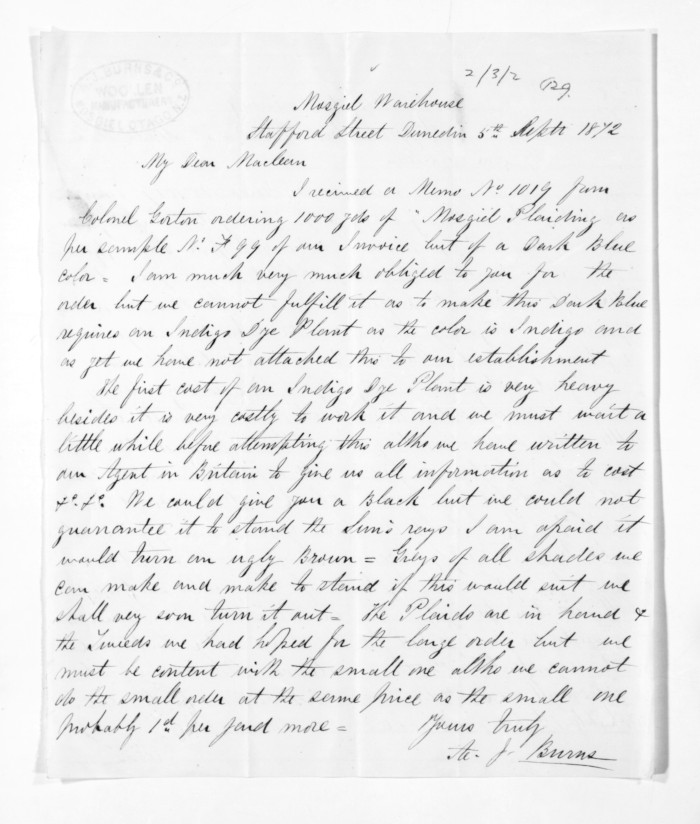 2/3/2 129.
A. J. BURNS & Co.
WOOLLEN
MANUFACTURERS
MOSGIEL OTAGO N.Z.
Mosgiel Warehouse
Stafford Street Dunedin 5th Septr 1872
My Dear Maclean
I received a Memo No 1019 from
Colonel Gorton ordering 1000 yds of "Mosgiel Plaiding as
per sample No F 99 of our Invoice but of a Dark Blue
color = I am much very much obliged to you for the
order but we cannot fulfill it as to make this Dark Blue
requires an Indigo Dye Plant as the color is Indigo and
as yet we have not attached this to our establishment
The first cost of an Indigo Dye Plant is very heavy
besides it is very costly to work it and we must wait a
little while before attempting this altho we have written to
our Agent in Britain to give us all information as to cost
&c. &c. We could give you a Black but we could not
guarantee it to stand the Sun's rays I am afraid it
would turn an ugly Brown = Greys of all shades we
can make and make to stand if this would suit we
shall very soon turn it out = The Plaids are in hand &
the Tweeds we had hoped for the large order but we
must be content with the small one altho we cannot
do the small order at the same price as the small one
probably 1d per yard more =
Yours truly
A. J. Burns